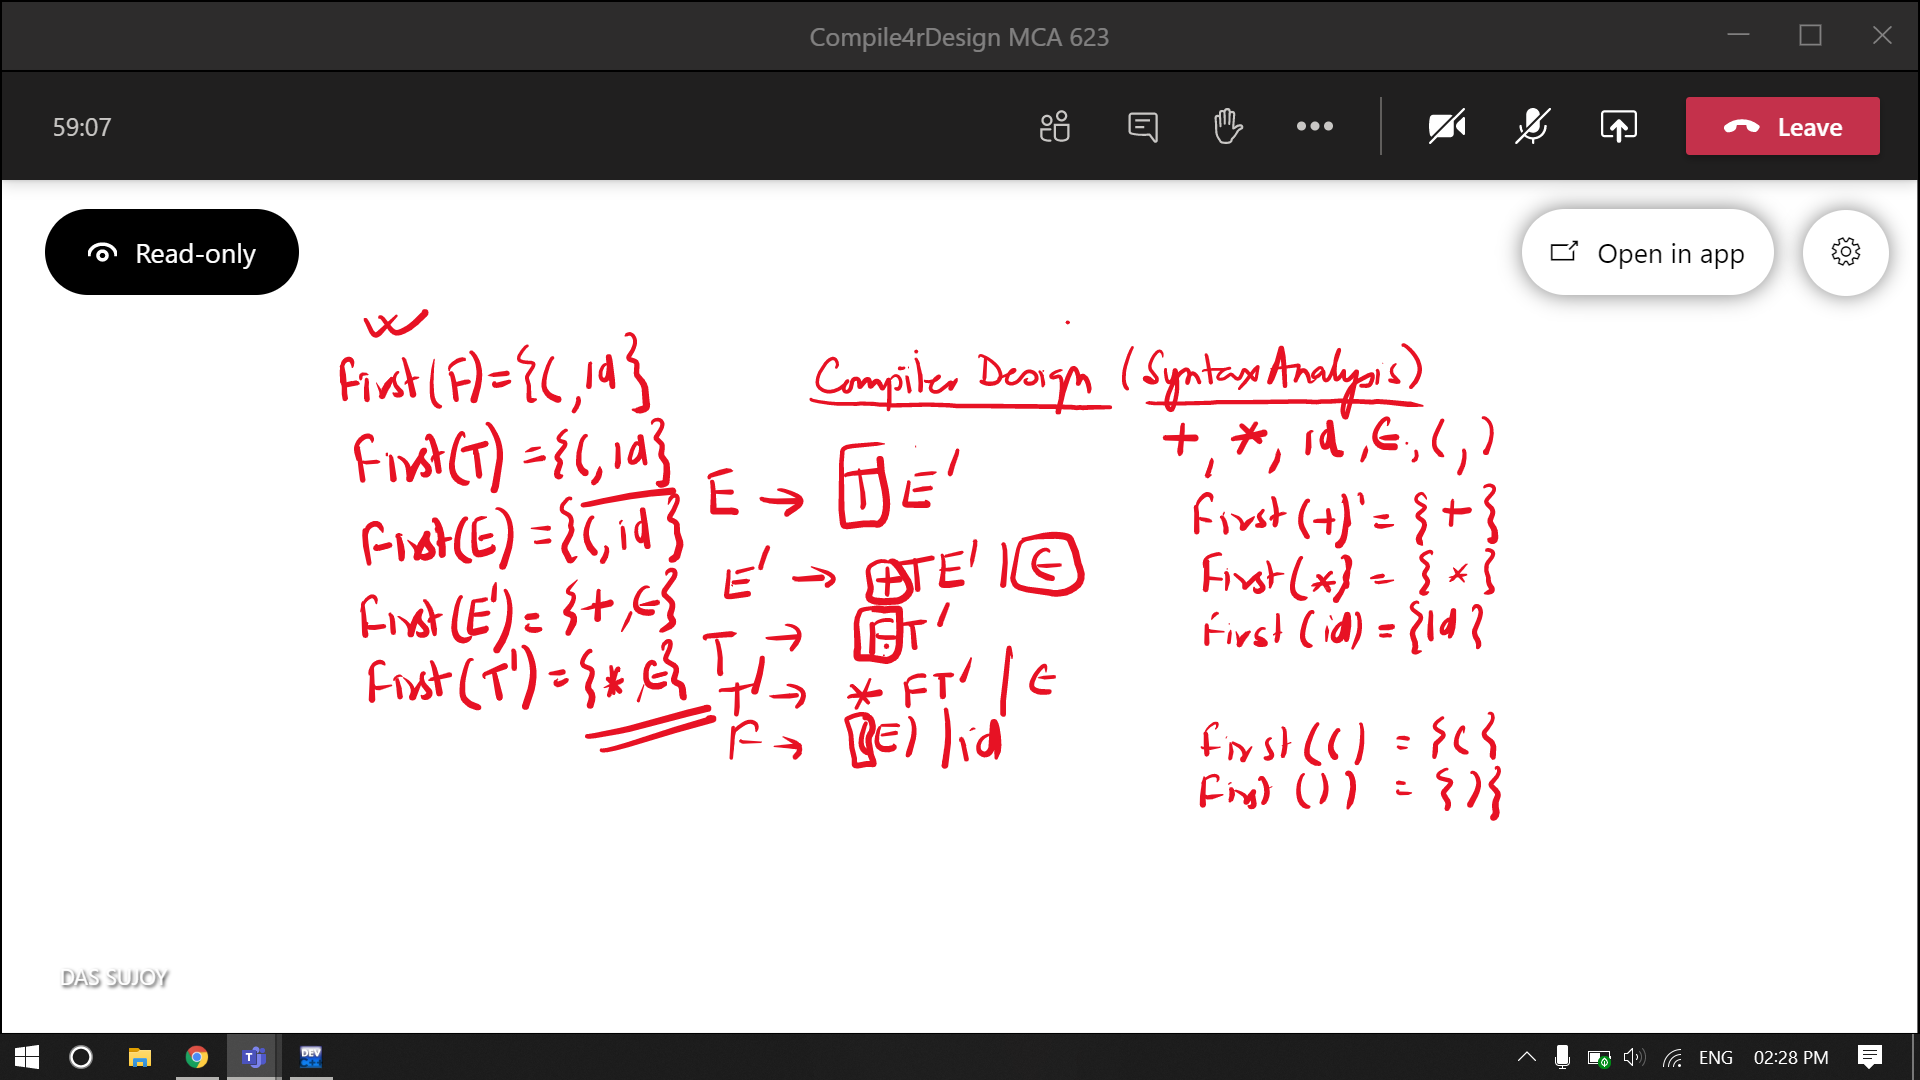 Compile4rDesign MCA 623
59:07
Leave
Read-only
Open in app
Compiler Design (Syntax Analysis)
First(F)={(,id}
First(T)={(,id}
First(E)={(,id}
First(E')={+,ϵ}
First(T')={*,ϵ}
E → TE'
E' → +TE' | ϵ
T → FT'
T' → *FT' | ϵ
F → (E) | id
+, *, id, ϵ, (, )
First(+)={+}
First(*}={*}
First(id)={id}
First(()={({
First())={)}
DAS SUJOY
DEV
ENG
02:28 PM